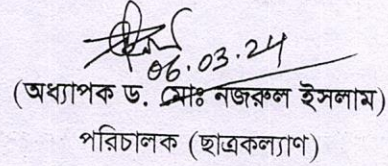 06.03.24
(অধ্যাপক ড. মোঃ নজরুল ইসলাম)
পরিচালক (ছাত্রকল্যাণ)